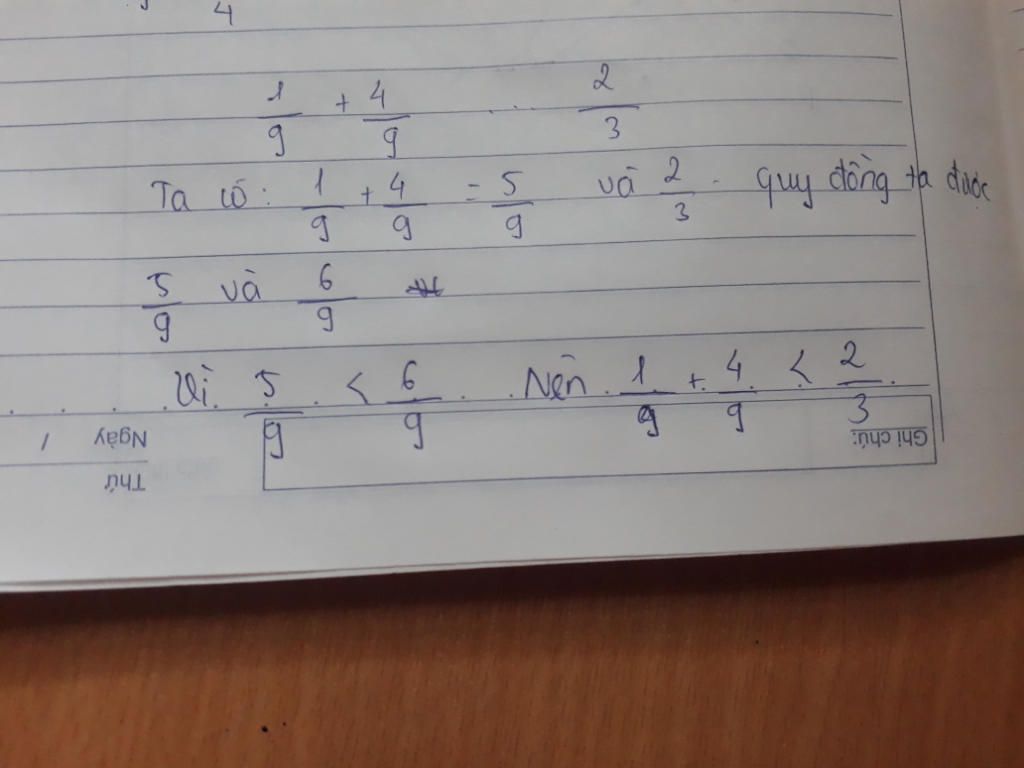 4
1/9 + 4/9 ... 2/3
Ta có: 1/9 + 4/9 = 5/9 và 2/3. quy đồng ta được
5/9 và 6/9
Vì 5/9 < 6/9. Nên 1/9 + 4/9 < 2/3.
Ghi chú:
Ngày 1
Thứ